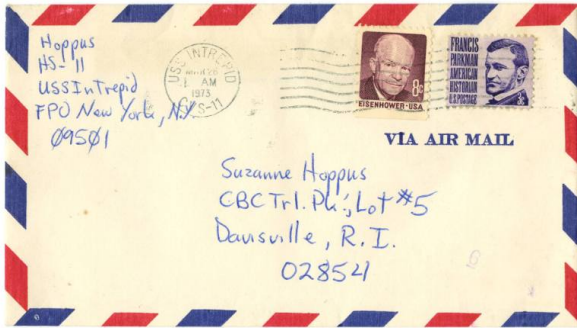 Hoppus
HS-11
USS Intrepid
FPO New York, N.Y.
09501
USS INTREPID
AM
1973
CVS-11
EISENHOWER·USA
8¢
FRANCIS
PARKMAN
AMERICAN
HISTORIAN
U.S. POSTAGE
3¢
VIA AIR MAIL
Suzanne Hoppus
CBC Trl. Pk., Lot #5
Davisville, R.I.
02854